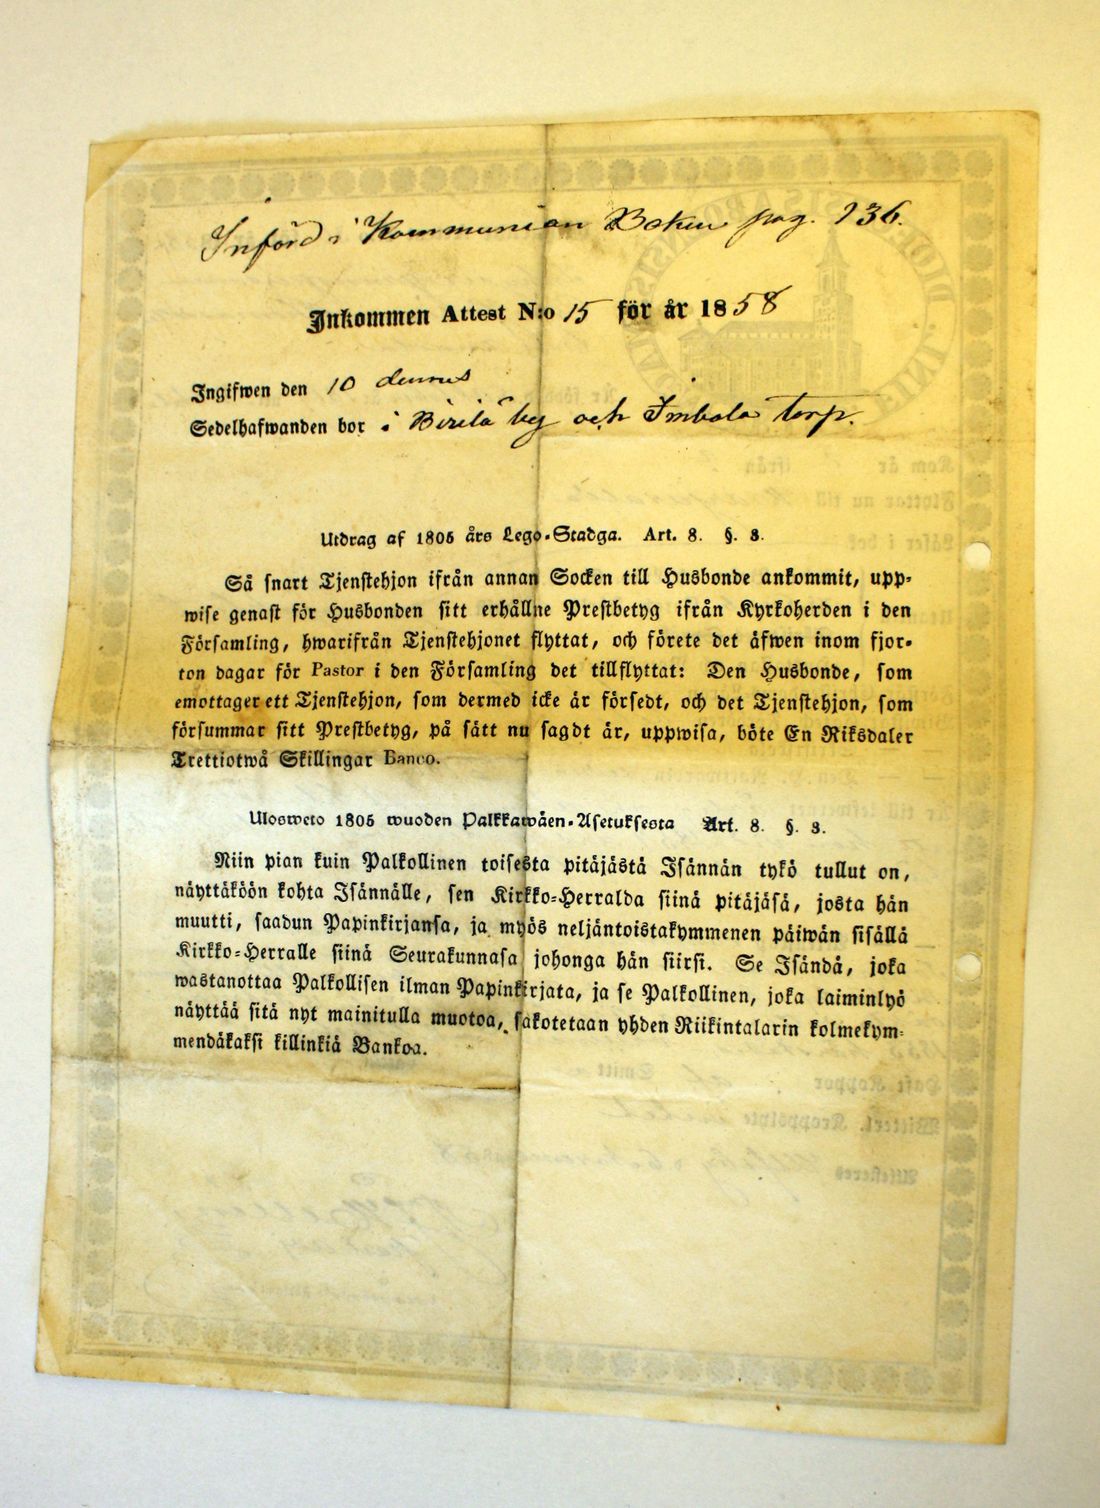 Införd i Kommunion Boken pag. 136.
Inkommen Attest N:o 15 för år 1858
Ingifwen den 10 dennes
Sedelhafwanden bor i Birilä by och Imbala torp.
Utdrag af 1805 års Lego-Stadga. Art. 8. §. 3.
Så snart Tjenstehjon ifrån annan Socken till Husbonde ankommit, upp-
wise genast för Husbonden sitt erhållne Prestbetyg ifrån Kyrkoherden i den
Församling, hwarifrån Tjenstehjonet flyttat, och förete det äfwen inom fjor-
ton dagar för Pastor i den Församling det tillflyttat: Den Husbonde, som
emottager ett Tjenstehjon, som dermed icke är försedt, och det Tjenstehjon, som
försummar sitt Prestbetyg, på sätt nu sagdt är, uppwisa, böte En Riksdaler
Trettiotwå Skillingar Banco.
Ulosweto 1805 wuoden Palkkawäen-Asetuksesta Art. 8. §. 3.
Niin pian kuin Palkollinen toisesta pitäjästä Isännän tykö tullut on,
näyttäköön kohta Isännälle, sen Kirkko-Herralda siinä pitäjäsä, josta hän
muutti, saadun Papinkirjansa, ja myös neljäntoistakymmenen päiwän sisällä
Kirkko-Herralle siinä Seurakunnasa johonga hän siirsi. Se Isändä, joka
wastanottaa Palkollisen ilman Papinkirjata, ja se Palkollinen, joka laiminlyö
näyttää sitä nyt mainitulla muotoa, sakotetaan yhden Riikintalarin kolmekym-
mendäkaksi killinkiä Bankoa.